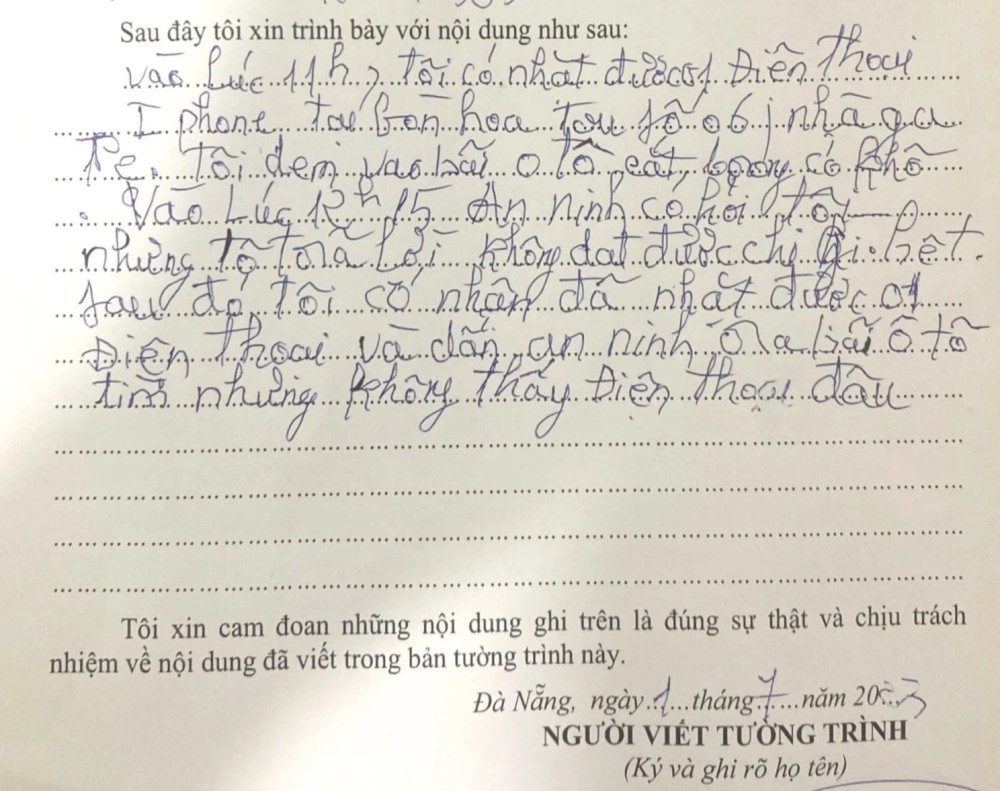 Sau đây tôi xin trình bày với nội dung như sau:
vào lúc 11h, tôi có nhặt được 01 Điện thoại
I phone tại hoa số 06 nhà ga
Tôi đem vào bãi ô tô cất có
Vào Lúc 12h 15 An ninh có hỏi tôi
nhưng tô tơlã lời không dạt được chị gi hết.
sau đó tôi có nhận đã nhặt được 01
Điện thoại và dẫn an ninh ra bãi ô tô
tìm nhưng không thấy Điện thoại đâu
Tôi xin cam đoan những nội dung ghi trên là đúng sự thật và chịu trách
nhiệm về nội dung đã viết trong bản tường trình này.
Đà Nẵng, ngày 1 tháng 7 năm 2023
NGƯỜI VIẾT TƯỜNG TRÌNH
(Ký và ghi rõ họ tên)